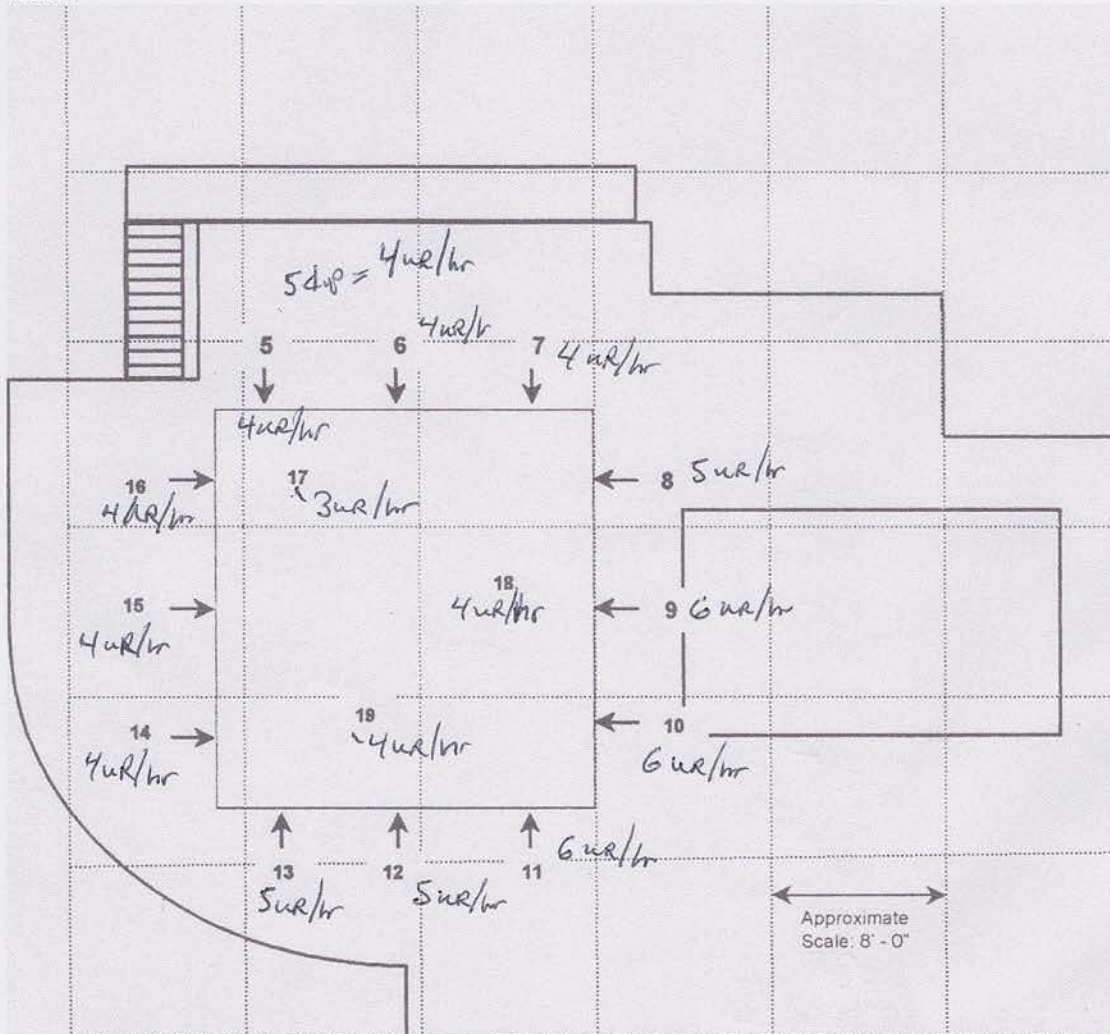 5 dup = 4 uR/hr
5
6 4 uR/r
7 4 uR/hr
4 uR/hr
16
4 uR/hr
17
3 uR/hr
8 5 uR/hr
15
4 uR/hr
18
4 uR/hr
9 6 uR/hr
14
4 uR/hr
19
4 uR/hr
10
6 uR/hr
13
5 uR/hr
12
5 uR/hr
11
6 uR/hr
Approximate
Scale: 8' - 0"